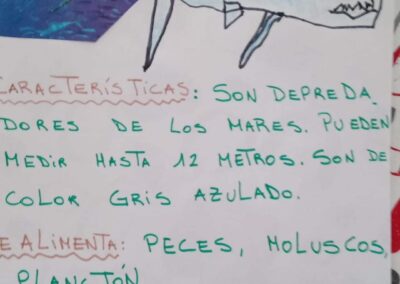 CARACTERÍSTICAS: SON DEPREDA
DORES DE LOS MARES. PUEDEN
MEDIR HASTA 12 METROS. SON DE
COLOR GRIS AZULADO.
E ALIMENTA: PECES, MOLUSCOS,
PLANCTÓN